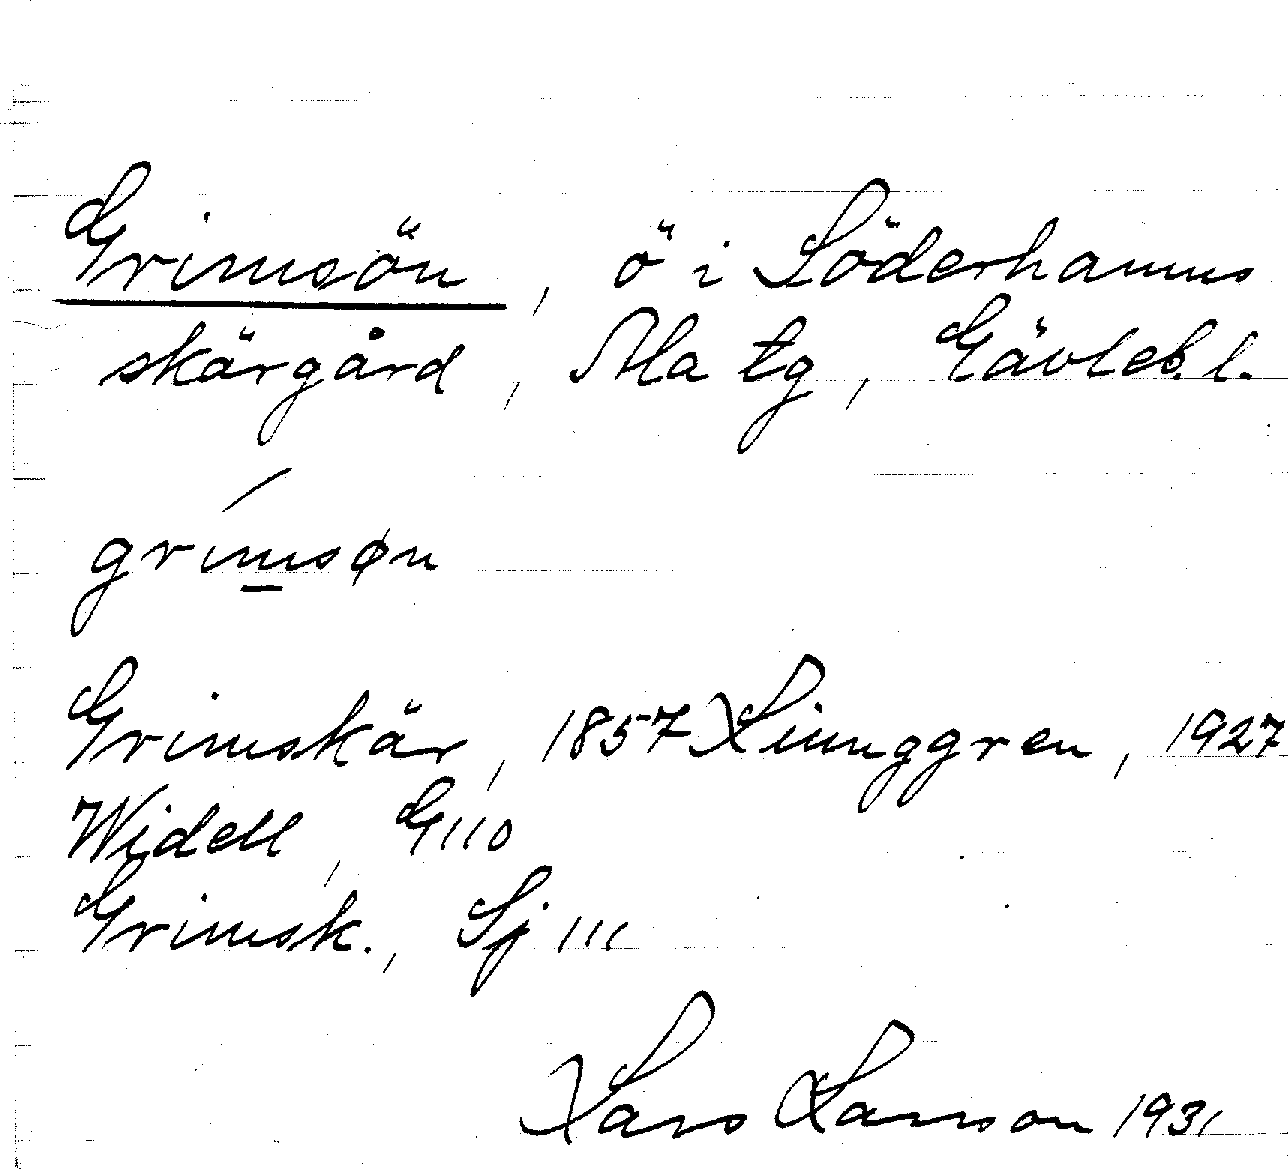 Grimsön, ö i Söderhamns
skärgård, Ala tg, Gävleb. l.
grı́msøn
Grimskär, 1857 Ljunggren, 1927
Widell, G 110
Grimsk., Sj 111
Lars Larsson 1931